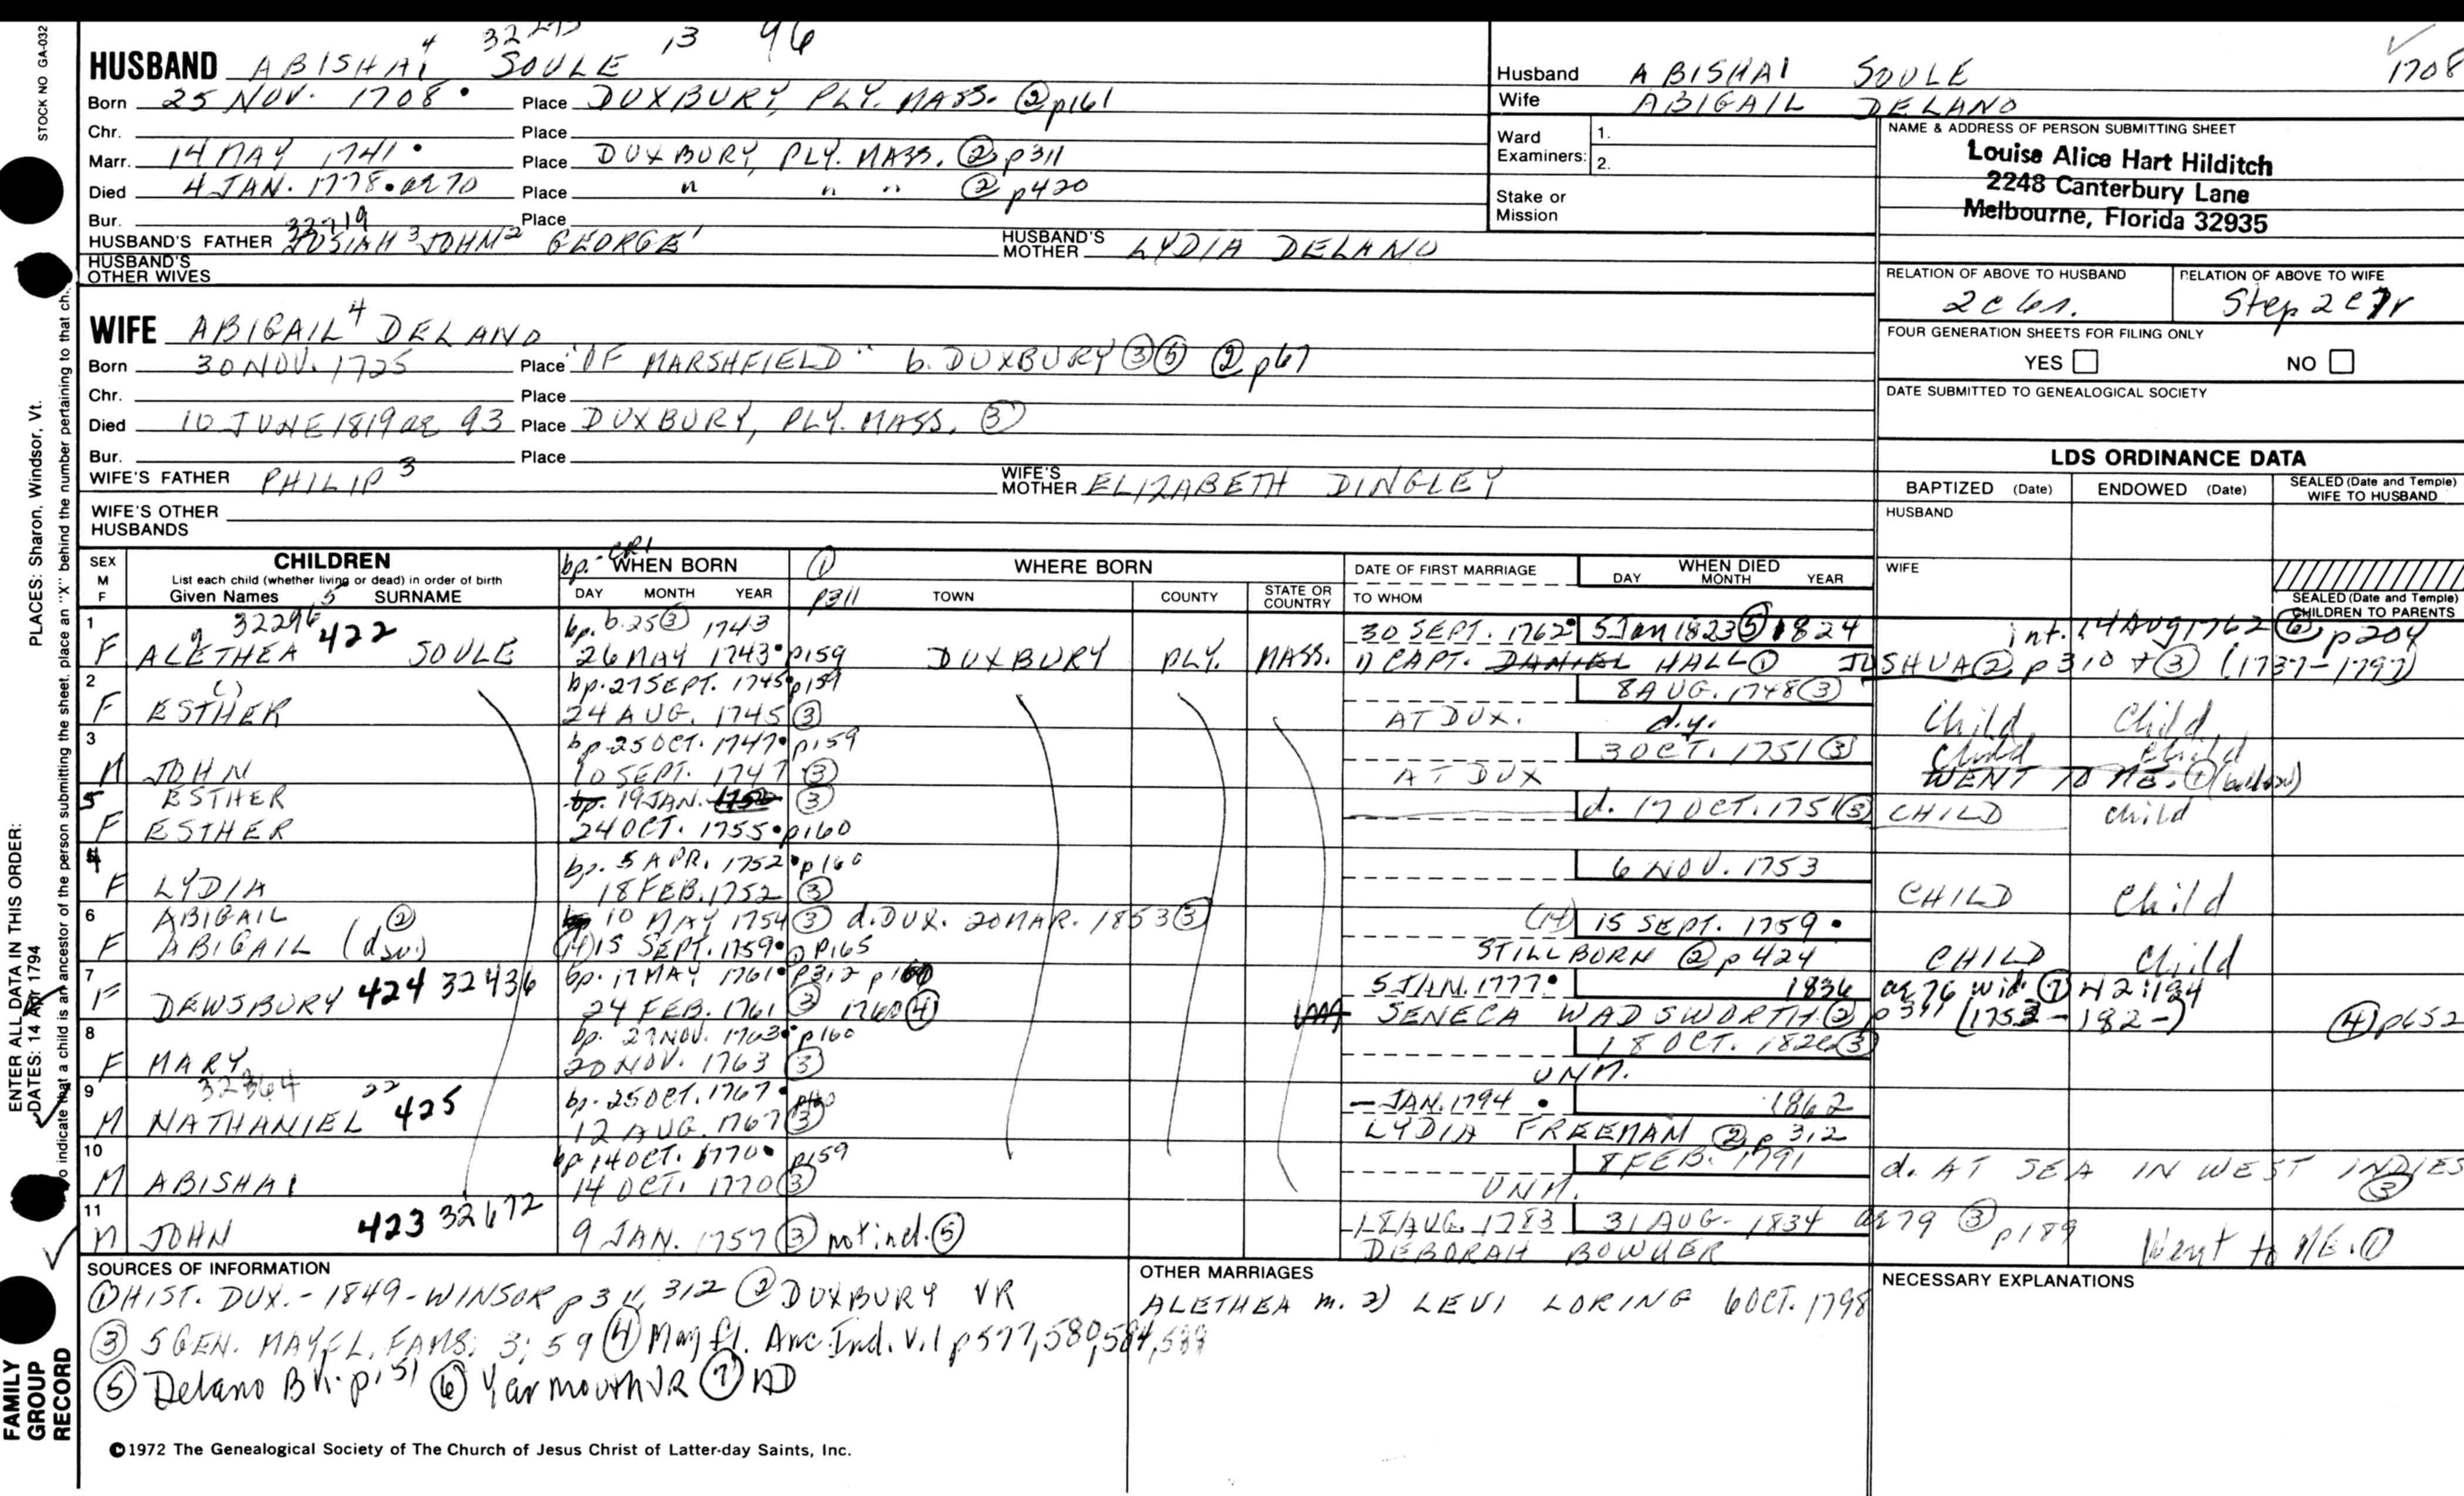 32295 13 96
HUSBAND ABISHAI 4 SOULE
Born 25 NOV. 1708 • Place DUXBURY, PLY. MASS. ② p161
Chr. Place
Marr. 14 MAY 1741 • Place DUXBURY, PLY. MASS. ② p311
Died 4 JAN. 1778 • ae 70 Place " " " ② p420
Bur. Place
HUSBAND'S FATHER JOSIAH 3 JOHN 2 GEORGE 1 HUSBAND'S MOTHER LYDIA DELANO
HUSBAND'S OTHER WIVES
WIFE ABIGAIL 4 DELANO
Born 30 NOV. 1725 Place "OF MARSHFIELD" b. DUXBURY ③ ⑤ ② p67
Chr. Place
Died 10 JUNE 1819 ae 93 Place DUXBURY, PLY. MASS. ③
Bur. Place
WIFE'S FATHER PHILIP 3 WIFE'S MOTHER ELIZABETH DINGLEY
WIFE'S OTHER HUSBANDS
Husband ABISHAI SOULE 1708
Wife ABIGAIL DELANO
Ward Examiners: 1.
2.
Stake or Mission
NAME & ADDRESS OF PERSON SUBMITTING SHEET
Louise Alice Hart Hilditch
2248 Canterbury Lane
Melbourne, Florida 32935
RELATION OF ABOVE TO HUSBAND RELATION OF ABOVE TO WIFE
Step
FOUR GENERATION SHEETS FOR FILING ONLY
YES NO
DATE SUBMITTED TO GENEALOGICAL SOCIETY
LDS ORDINANCE DATA
BAPTIZED (Date) ENDOWED (Date) SEALED (Date and Temple) WIFE TO HUSBAND
HUSBAND
WIFE
SEALED (Date and Temple) CHILDREN TO PARENTS
SEX M F CHILDREN bp. - CR1 WHEN BORN ① WHERE BORN DATE OF FIRST MARRIAGE WHEN DIED
List each child (whether living or dead) in order of birth
Given Names SURNAME DAY MONTH YEAR p311 TOWN COUNTY STATE OR COUNTRY TO WHOM DAY MONTH YEAR
1 32296 5 422 bp. b. 25 ③ 1743 30 SEPT. 1762 • 5 Jan 1823 ⑤ 1824 int. 14 Aug 1762 ⑥ p204
F ALETHEA SOULE 26 MAY 1743 • p159 DUXBURY PLY. MASS. 1) CAPT. DANIEL HALL ① JOSHUA ② p310 + ③ (1737-1797)
2 bp. 27 SEPT. 1745 • p159 8 AUG. 1748 ③
F ESTHER 24 AUG. 1745 ③ AT DUX. d.y. Child Child
3 bp. 25 OCT. 1747 • p159 3 OCT. 1751 ③ Child Child
M JOHN 10 SEPT. 1747 ③ AT DUX WENT TO ME. ①
5 ESTHER bp. 19 JAN. ③ d. 17 OCT. 1751 ③ CHILD Child
F ESTHER 24 OCT. 1755 • p160
4 bp. 5 APR. 1752 • p160 6 NOV. 1753
F LYDIA 18 FEB. 1752 ③ CHILD Child
6 ABIGAIL 10 MAY 1754 ③ d. DUX. 20 MAR. 1853 ③ (14) 15 SEPT. 1759 •
F ABIGAIL (dau) ② (14) 15 SEPT. 1759 • p165 STILLBORN ② p424 CHILD Child
7 bp. 17 MAY 1761 • p312 p160 5 JAN. 1777 • 1836 ae 76 wid. ⑦ 42:194
F DEWSBURY 424 32436 24 FEB. 1761 ③ 1760 ④ SENECA WADSWORTH ② p311 (1753-182-) ④ p652
8 bp. 27 NOV. 1763 • p160 18 OCT. 1826 ③
F MARY 20 NOV. 1763 ③ UNM.
9 32364 425 bp. 25 OCT. 1767 • p160 - JAN. 1794 • 1862
M NATHANIEL 12 AUG. 1767 ③ LYDIA FREEMAN ② p312
10 bp 14 OCT. 1770 • p159 8 FEB. 1791 d. AT SEA IN WEST INDIES ③
M ABISHAI 14 OCT. 1770 ③ UNM.
11 423 32672 18 AUG. 1783 31 AUG. 1834 ae 79 ③ p189
M JOHN 9 JAN. 1757 ③ not incl. ⑤ DEBORAH BOWKER Went to ME. ①
SOURCES OF INFORMATION
① HIST. DUX. - 1849 - WINSOR p311, 312 ② DUXBURY VR
③ 5 GEN. MAYFL. FAMS. 3:59 ④ Mayfl. Anc. Ind. V.1 p577, 580, 584, 588
⑤ Delano Bk. p151 ⑥ Yarmouth VR ⑦ AD
OTHER MARRIAGES
ALETHEA m. 2) LEVI LORING 6 OCT. 1798
NECESSARY EXPLANATIONS
©1972 The Genealogical Society of The Church of Jesus Christ of Latter-day Saints, Inc.
STOCK NO GA-032
ENTER ALL DATA IN THIS ORDER: PLACES: Sharon, Windsor, Vt.
DATES: 14 Apr 1794
To indicate that a child is an ancestor of the person submitting the sheet, place an "X" behind the number pertaining to that ch
FAMILY GROUP RECORD